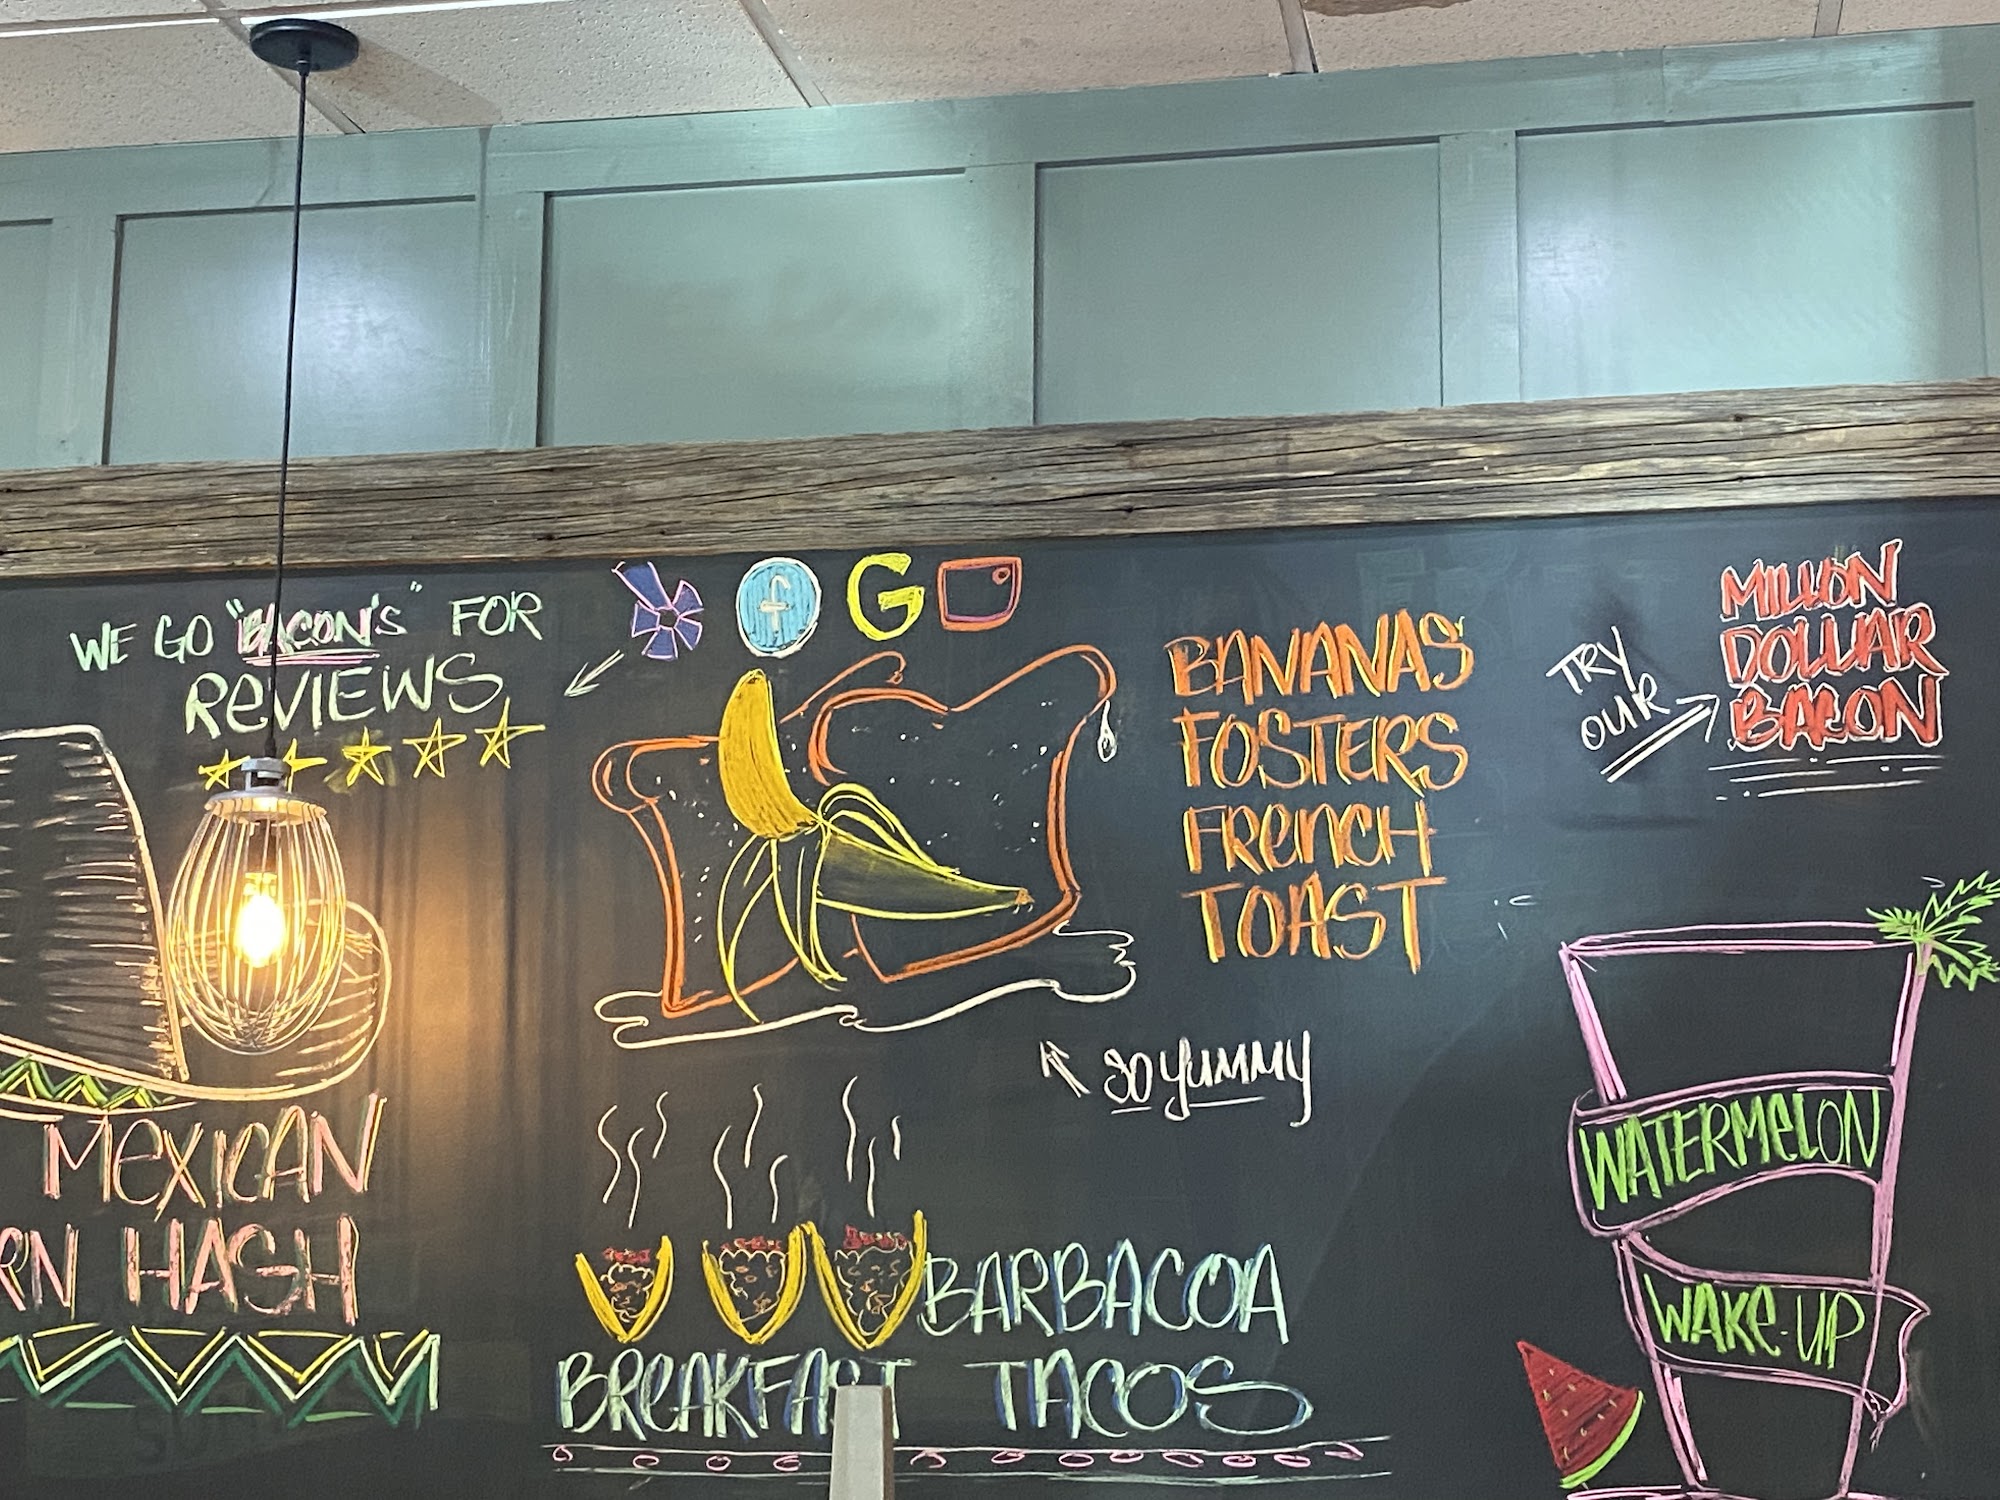 WE GO "BACON'S" FOR
REVIEWS
f G
BANANAS
FOSTERS
FRENCH
TOAST
TRY
OUR
MILLION
DOLLAR
BACON
SO YUMMY
MEXICAN
RN HASH
BARBACOA
BREAKFAST TACOS
WATERMELON
WAKE-UP